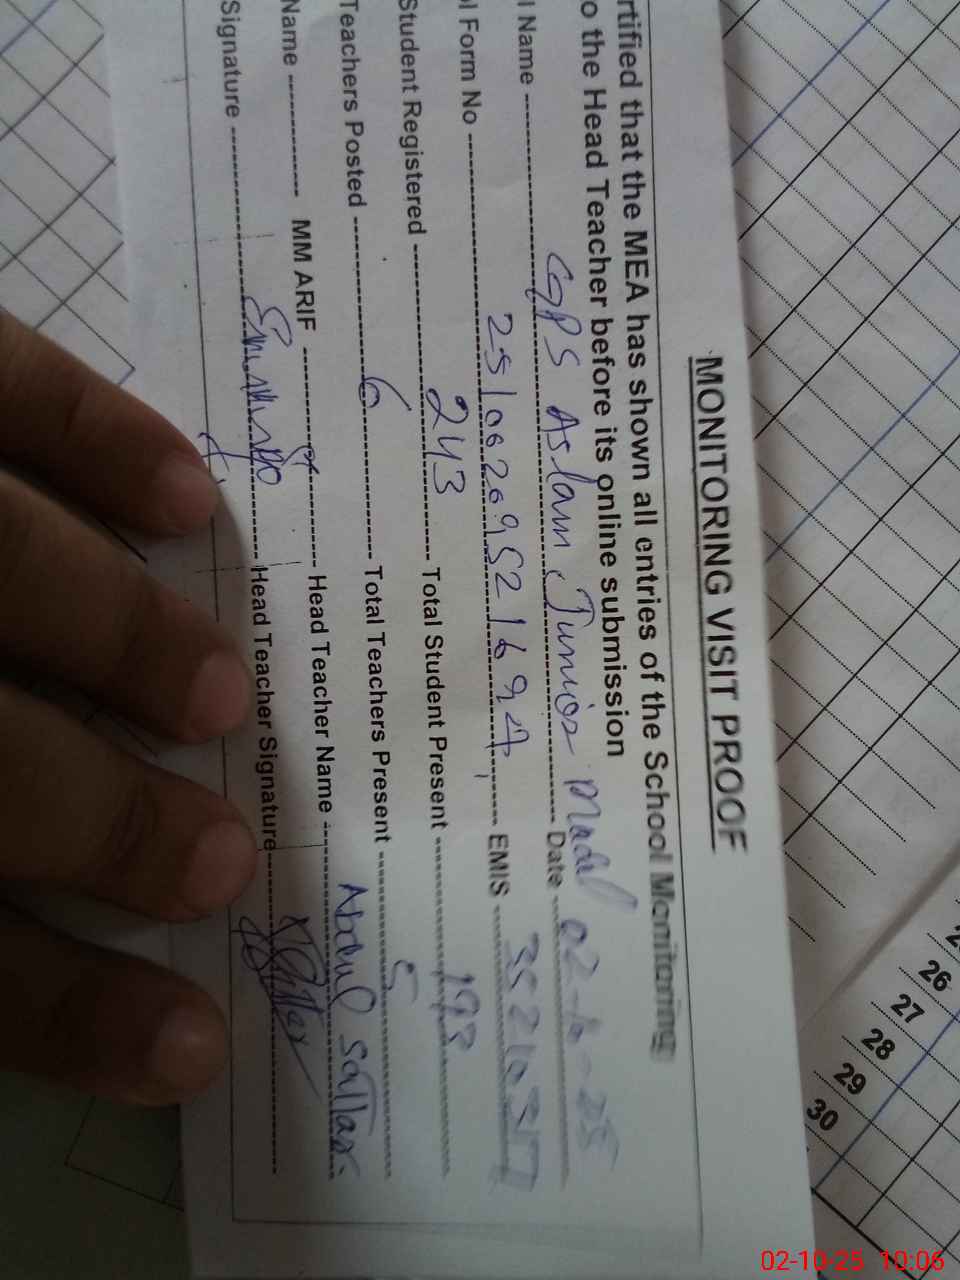 MONITORING VISIT PROOF
rtified that the MEA has shown all entries of the School Monitoring
o the Head Teacher before its online submission
l Name GPS Aslam Junior Madal Date 02-10-25
l Form No EMIS
Student Registered 243 Total Student Present 193
Teachers Posted 6 Total Teachers Present 5
Name MM ARIF Head Teacher Name Abdul Sattar.
Signature Head Teacher Signature
26
27
28
29
30
02-10-25 10:06